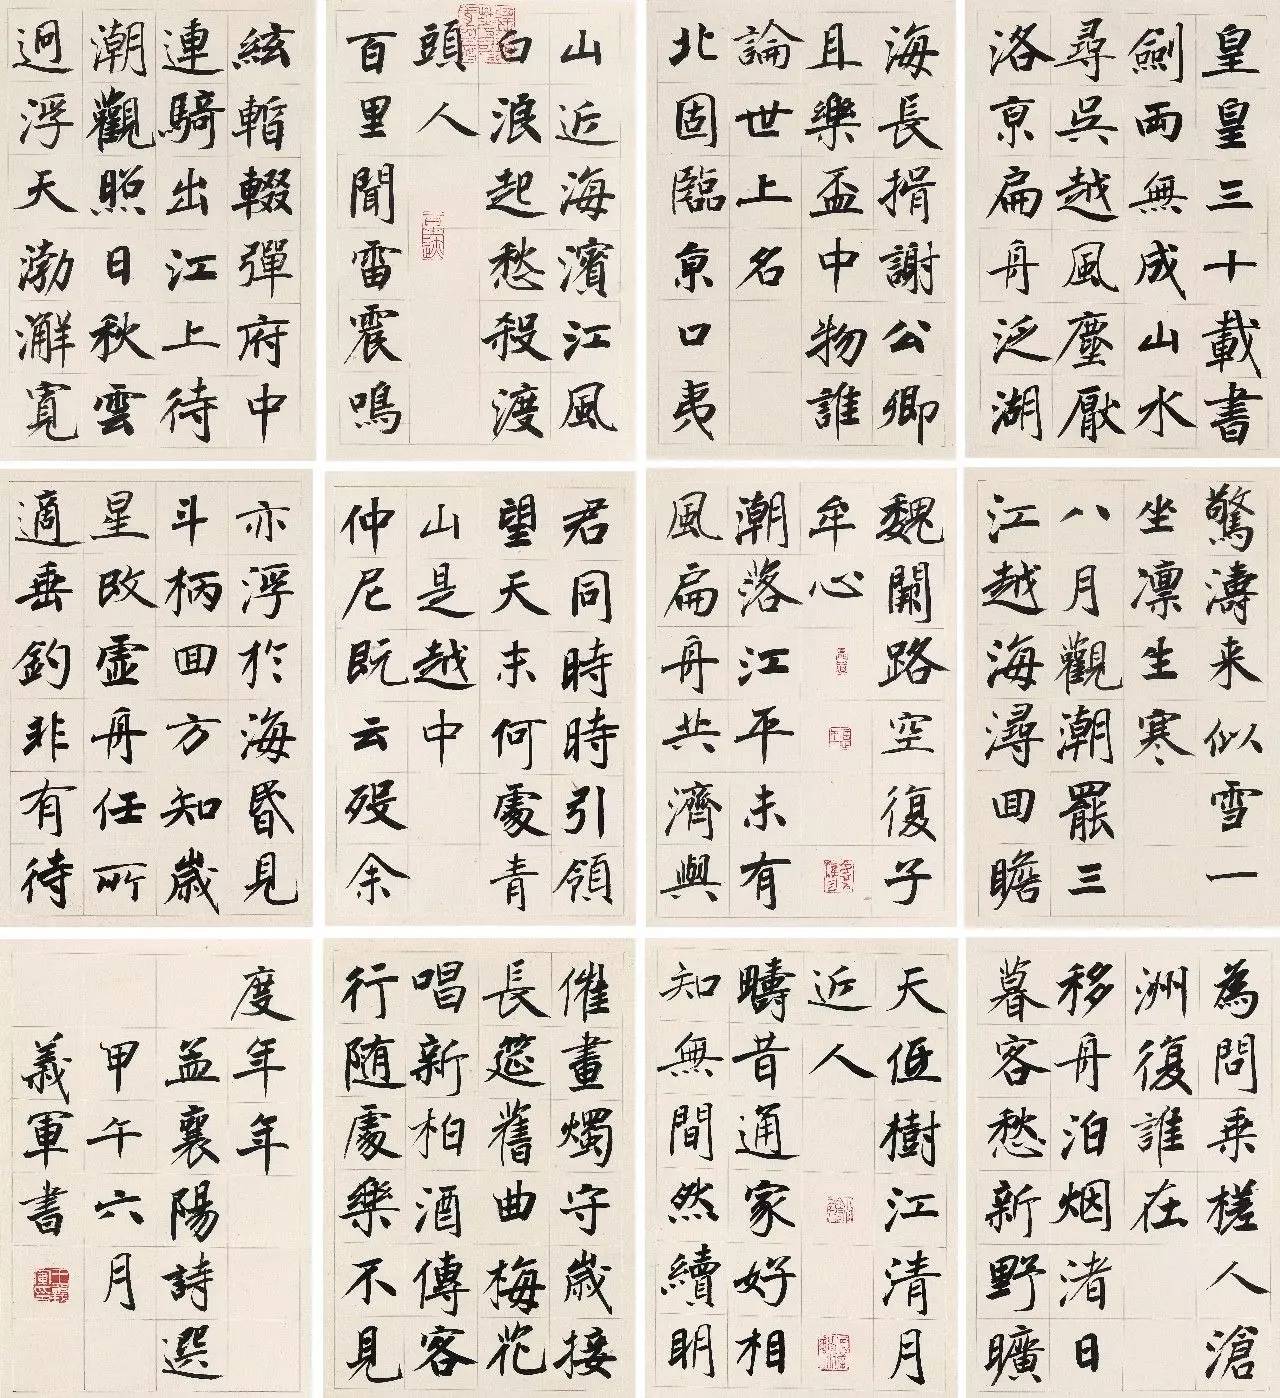 皇皇三十載書
劍兩無成山水
尋吳越風塵厭
洛京扁舟泛湖
海長揖謝公卿
且樂盃中物誰
論世上名
北固臨京口夷
山近海濱江風
白浪起愁殺渡
頭人
百里聞雷震鳴
絃暫輟彈府中
連騎出江上待
潮觀照日秋雲
迥浮天渤澥寬
驚濤来似雪一
坐凛生寒
八月觀潮罷三
江越海潯回瞻
魏闕路空復子
牟心
潮落江平未有
風扁舟共濟與
君同時時引領
望天末何處青
山是越中
仲尼既云殁余
亦浮於海昏見
斗柄回方知歲
星改虚舟任所
適垂釣非有待
為問乘槎人滄
洲復誰在
移舟泊烟渚日
暮客愁新野曠
天低樹江清月
近人
疇昔通家好相
知無間然續明
催畫燭守歲接
長筵舊曲梅花
唱新柏酒傳客
行随處樂不見
度年年
孟襄陽詩選
甲午六月
義軍書